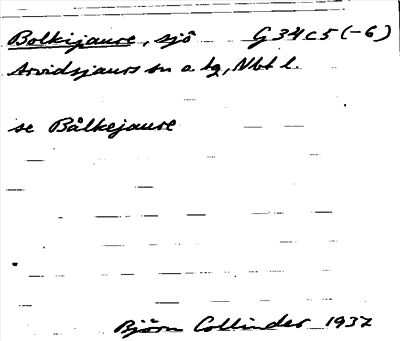 Bolkijaure, sjö G 34 c 5 (-6)
Arvidsjaurs sn o. lg, Nbt l.
se Bålkejaure
Björn Collinder 1937